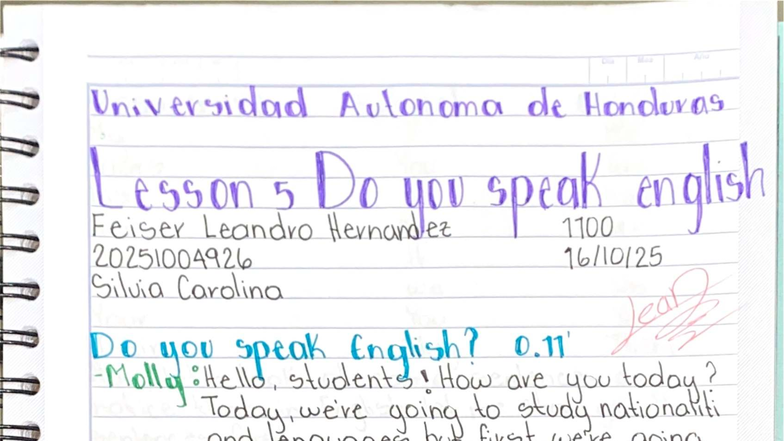 Universidad Autonoma de Honduras
Lesson 5 Do you speak english
Feiser Leandro Hernandez 1100
20251004926 16/10/25
Silvia Carolina
Jean
Do you speak English? 0.11'
-Molly: Hello, students! How are you today?
Today, we're going to study nationaliti
and languages but first we're going